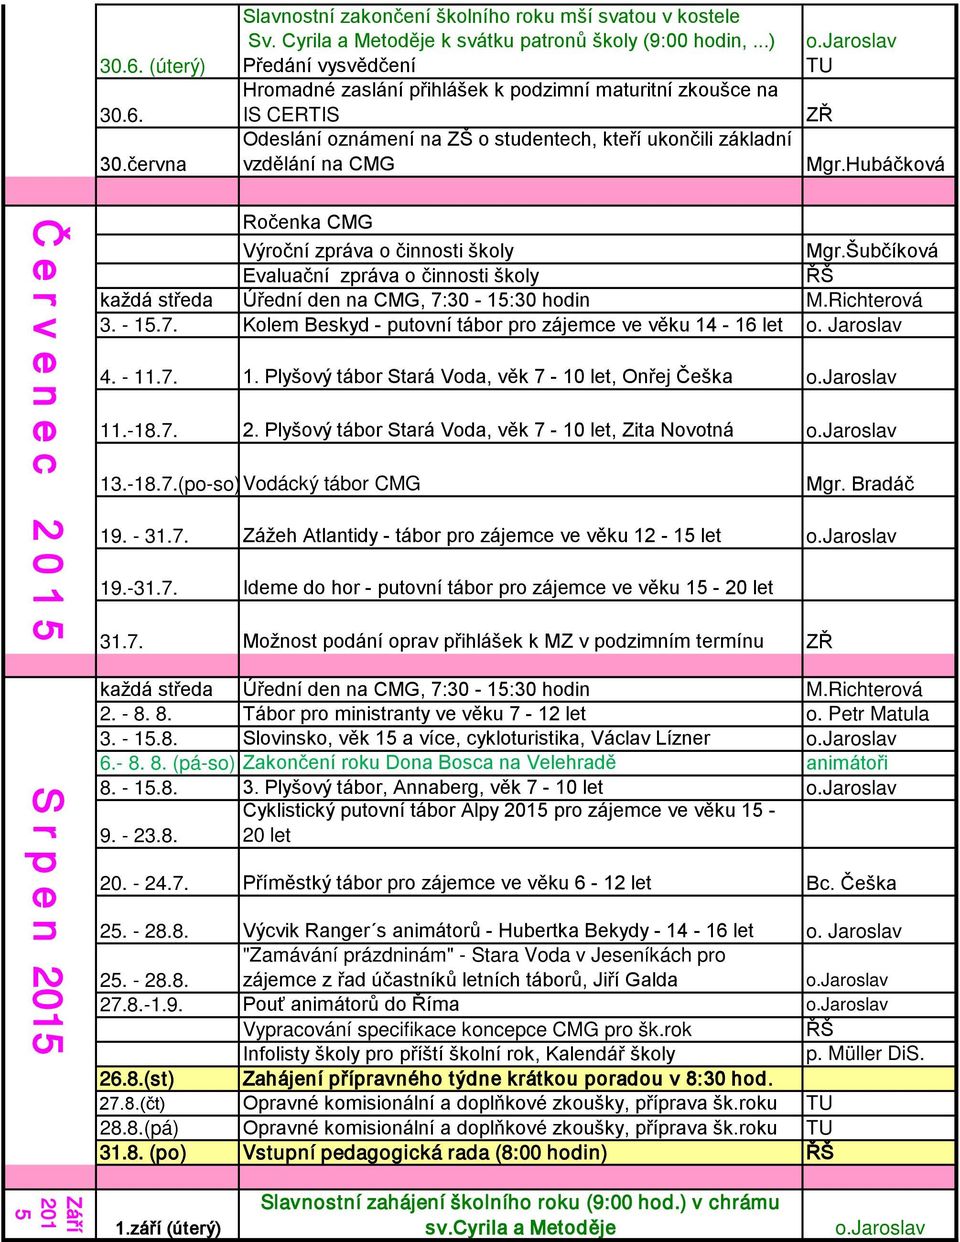 Slavnostní zakončení školního roku mší svatou v kostele
Sv. Cyrila a Metoděje k svátku patronů školy (9:00 hodin, ...) o.Jaroslav
30.6. (úterý) Předání vysvědčení TU
Hromadné zaslání přihlášek k podzimní maturitní zkoušce na
30.6. IS CERTIS ZŘ
Odeslání oznámení na ZŠ o studentech, kteří ukončili základní
30.června vzdělání na CMG Mgr.Hubáčková
Červenec 2015
Ročenka CMG
Výroční zpráva o činnosti školy Mgr.Šubčíková
Evaluační zpráva o činnosti školy ŘŠ
každá středa Úřední den na CMG, 7:30 - 15:30 hodin M.Richterová
3. - 15.7. Kolem Beskyd - putovní tábor pro zájemce ve věku 14 - 16 let o. Jaroslav
4. - 11.7. 1. Plyšový tábor Stará Voda, věk 7 - 10 let, Onřej Češka o.Jaroslav
11.-18.7. 2. Plyšový tábor Stará Voda, věk 7 - 10 let, Zita Novotná o.Jaroslav
13.-18.7.(po-so) Vodácký tábor CMG Mgr. Bradáč
19. - 31.7. Zážeh Atlantidy - tábor pro zájemce ve věku 12 - 15 let o.Jaroslav
19.-31.7. Ideme do hor - putovní tábor pro zájemce ve věku 15 - 20 let
31.7. Možnost podání oprav přihlášek k MZ v podzimním termínu ZŘ
Srpen 2015
každá středa Úřední den na CMG, 7:30 - 15:30 hodin M.Richterová
2. - 8. 8. Tábor pro ministranty ve věku 7 - 12 let o. Petr Matula
3. - 15.8. Slovinsko, věk 15 a více, cykloturistika, Václav Lízner o.Jaroslav
6.- 8. 8. (pá-so) Zakončení roku Dona Bosca na Velehradě animátoři
8. - 15.8. 3. Plyšový tábor, Annaberg, věk 7 - 10 let o.Jaroslav
Cyklistický putovní tábor Alpy 2015 pro zájemce ve věku 15 -
9. - 23.8. 20 let
20. - 24.7. Příměstký tábor pro zájemce ve věku 6 - 12 let Bc. Češka
25. - 28.8. Výcvik Ranger´s animátorů - Hubertka Bekydy - 14 - 16 let o. Jaroslav
"Zamávání prázdninám" - Stara Voda v Jeseníkách pro
25. - 28.8. zájemce z řad účastníků letních táborů, Jiří Galda o.Jaroslav
27.8.-1.9. Pouť animátorů do Říma o.Jaroslav
Vypracování specifikace koncepce CMG pro šk.rok ŘŠ
Infolisty školy pro příští školní rok, Kalendář školy p. Müller DiS.
26.8.(st) Zahájení přípravného týdne krátkou poradou v 8:30 hod.
27.8.(čt) Opravné komisionální a doplňkové zkoušky, příprava šk.roku TU
28.8.(pá) Opravné komisionální a doplňkové zkoušky, příprava šk.roku TU
31.8. (po) Vstupní pedagogická rada (8:00 hodin) ŘŠ
Září
201
5
Slavnostní zahájení školního roku (9:00 hod.) v chrámu
1.září (úterý) sv.Cyrila a Metoděje o.Jaroslav